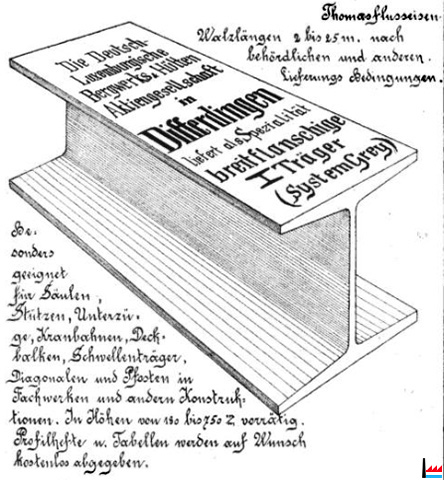 Thomasflusseisen.
Walzlängen 2 bis 25 m. nach
behördlichen und anderen.
Lieferungs Bedingungen.
Die Deutsch-
Luxemburgische
Bergwerks & Hütten
Aktiengesellschaft
in
Differdingen
liefert als Spezialität
breitflanschige
I Träger
(System Grey)
Be-
sonders
geeignet
für Säulen,
Stützen, Unterzü-
ge, Kranbahnen, Deck-
balken, Schwellenträger,
Diagonalen und Pfosten in
Fachwerken und andern Konstruk-
tionen. In Höhen von 180 bis 750 m/m vorrätig.
Profilhefte u. Tabellen werden auf Wunsch
kostenlos abgegeben.